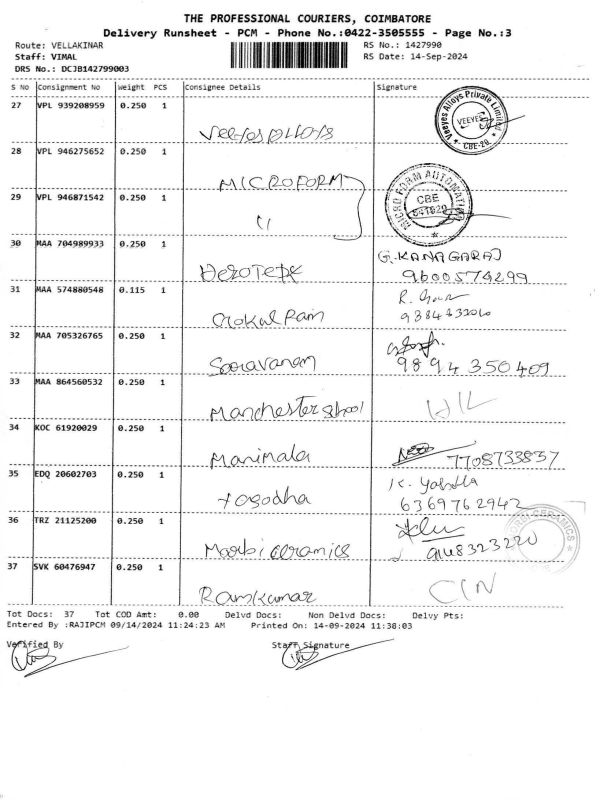 THE PROFESSIONAL COURIERS, COIMBATORE
Delivery Runsheet - PCM - Phone No.:0422-3505555 - Page No.:3
Route: VELLAKINAR RS No.: 1427990
Staff: VIMAL RS Date: 14-Sep-2024
DRS No.: DCJB142799003
S No Consignment No Weight PCS Consignee Details Signature
27 VPL 939208959 0.250 1
Veeyes Alloys Private Limited
VEEYES
CBE-20
28 VPL 946275652 0.250 1
MICROFORM
29 VPL 946871542 0.250 1
"
MICRO FORM AUTOMATION
CBE
641020
30 MAA 704989933 0.250 1 G. KANAGARAJ
9600574299
31 MAA 574880548 0.115 1
Gokul Ram
32 MAA 705326765 0.250 1
Saravanam 9894350409
33 MAA 864560532 0.250 1
Manchester school
34 KOC 61920029 0.250 1
Manimala 7708733857
35 EDQ 20602703 0.250 1
Yasodha 6369762942
36 TRZ 21125200 0.250 1
Marbi ceramics 9148323220
CERAMICS
37 SVK 60476947 0.250 1
Ramkumar
Tot Docs: 37 Tot COD Amt: 0.00 Delvd Docs: Non Delvd Docs: Delvy Pts:
Entered By :RAJIPCM 09/14/2024 11:24:23 AM Printed On: 14-09-2024 11:38:03
Verified By Staff Signature